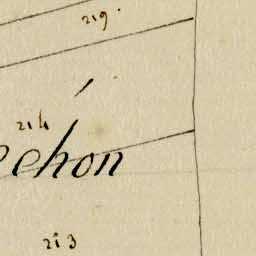 219.
214
echón
213